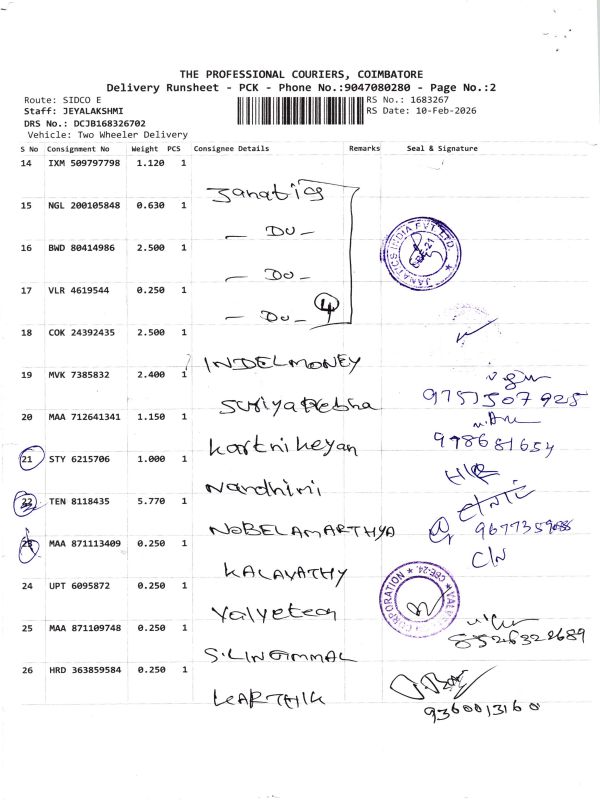 THE PROFESSIONAL COURIERS, COIMBATORE
Delivery Runsheet - PCK - Phone No.:9047080280 - Page No.:2
Route: SIDCO E
RS No.: 1683267
Staff: JEYALAKSHMI
RS Date: 10-Feb-2026
DRS No.: DCJB168326702
Vehicle: Two Wheeler Delivery
S No Consignment No Weight PCS Consignee Details Remarks Seal & Signature
14 IXM 509797798 1.120 1
Janatics
15 NGL 200105848 0.630 1
- DO -
16 BWD 80414986 2.500 1
- DO -
JANATICS INDIA PVT. LTD. CBE-21
17 VLR 4619544 0.250 1
- DO - 4
18 COK 24392435 2.500 1
INDELMONEY
19 MVK 7385832 2.400 1
Suriya
9757507925
20 MAA 712641341 1.150 1
Kartnikeyan
998681654
21 STY 6215706 1.000 1
Nardhini
22 TEN 8118435 5.770 1
NOBELAMARTHYA
23 MAA 871113409 0.250 1
C/N
KALAVATHY
24 UPT 6095872 0.250 1
CORPORATION CBE-24
Valvetech
25 MAA 871109748 0.250 1
8526322689
S.LINGAMMAL
26 HRD 363859584 0.250 1
KARTHIK
9360013160